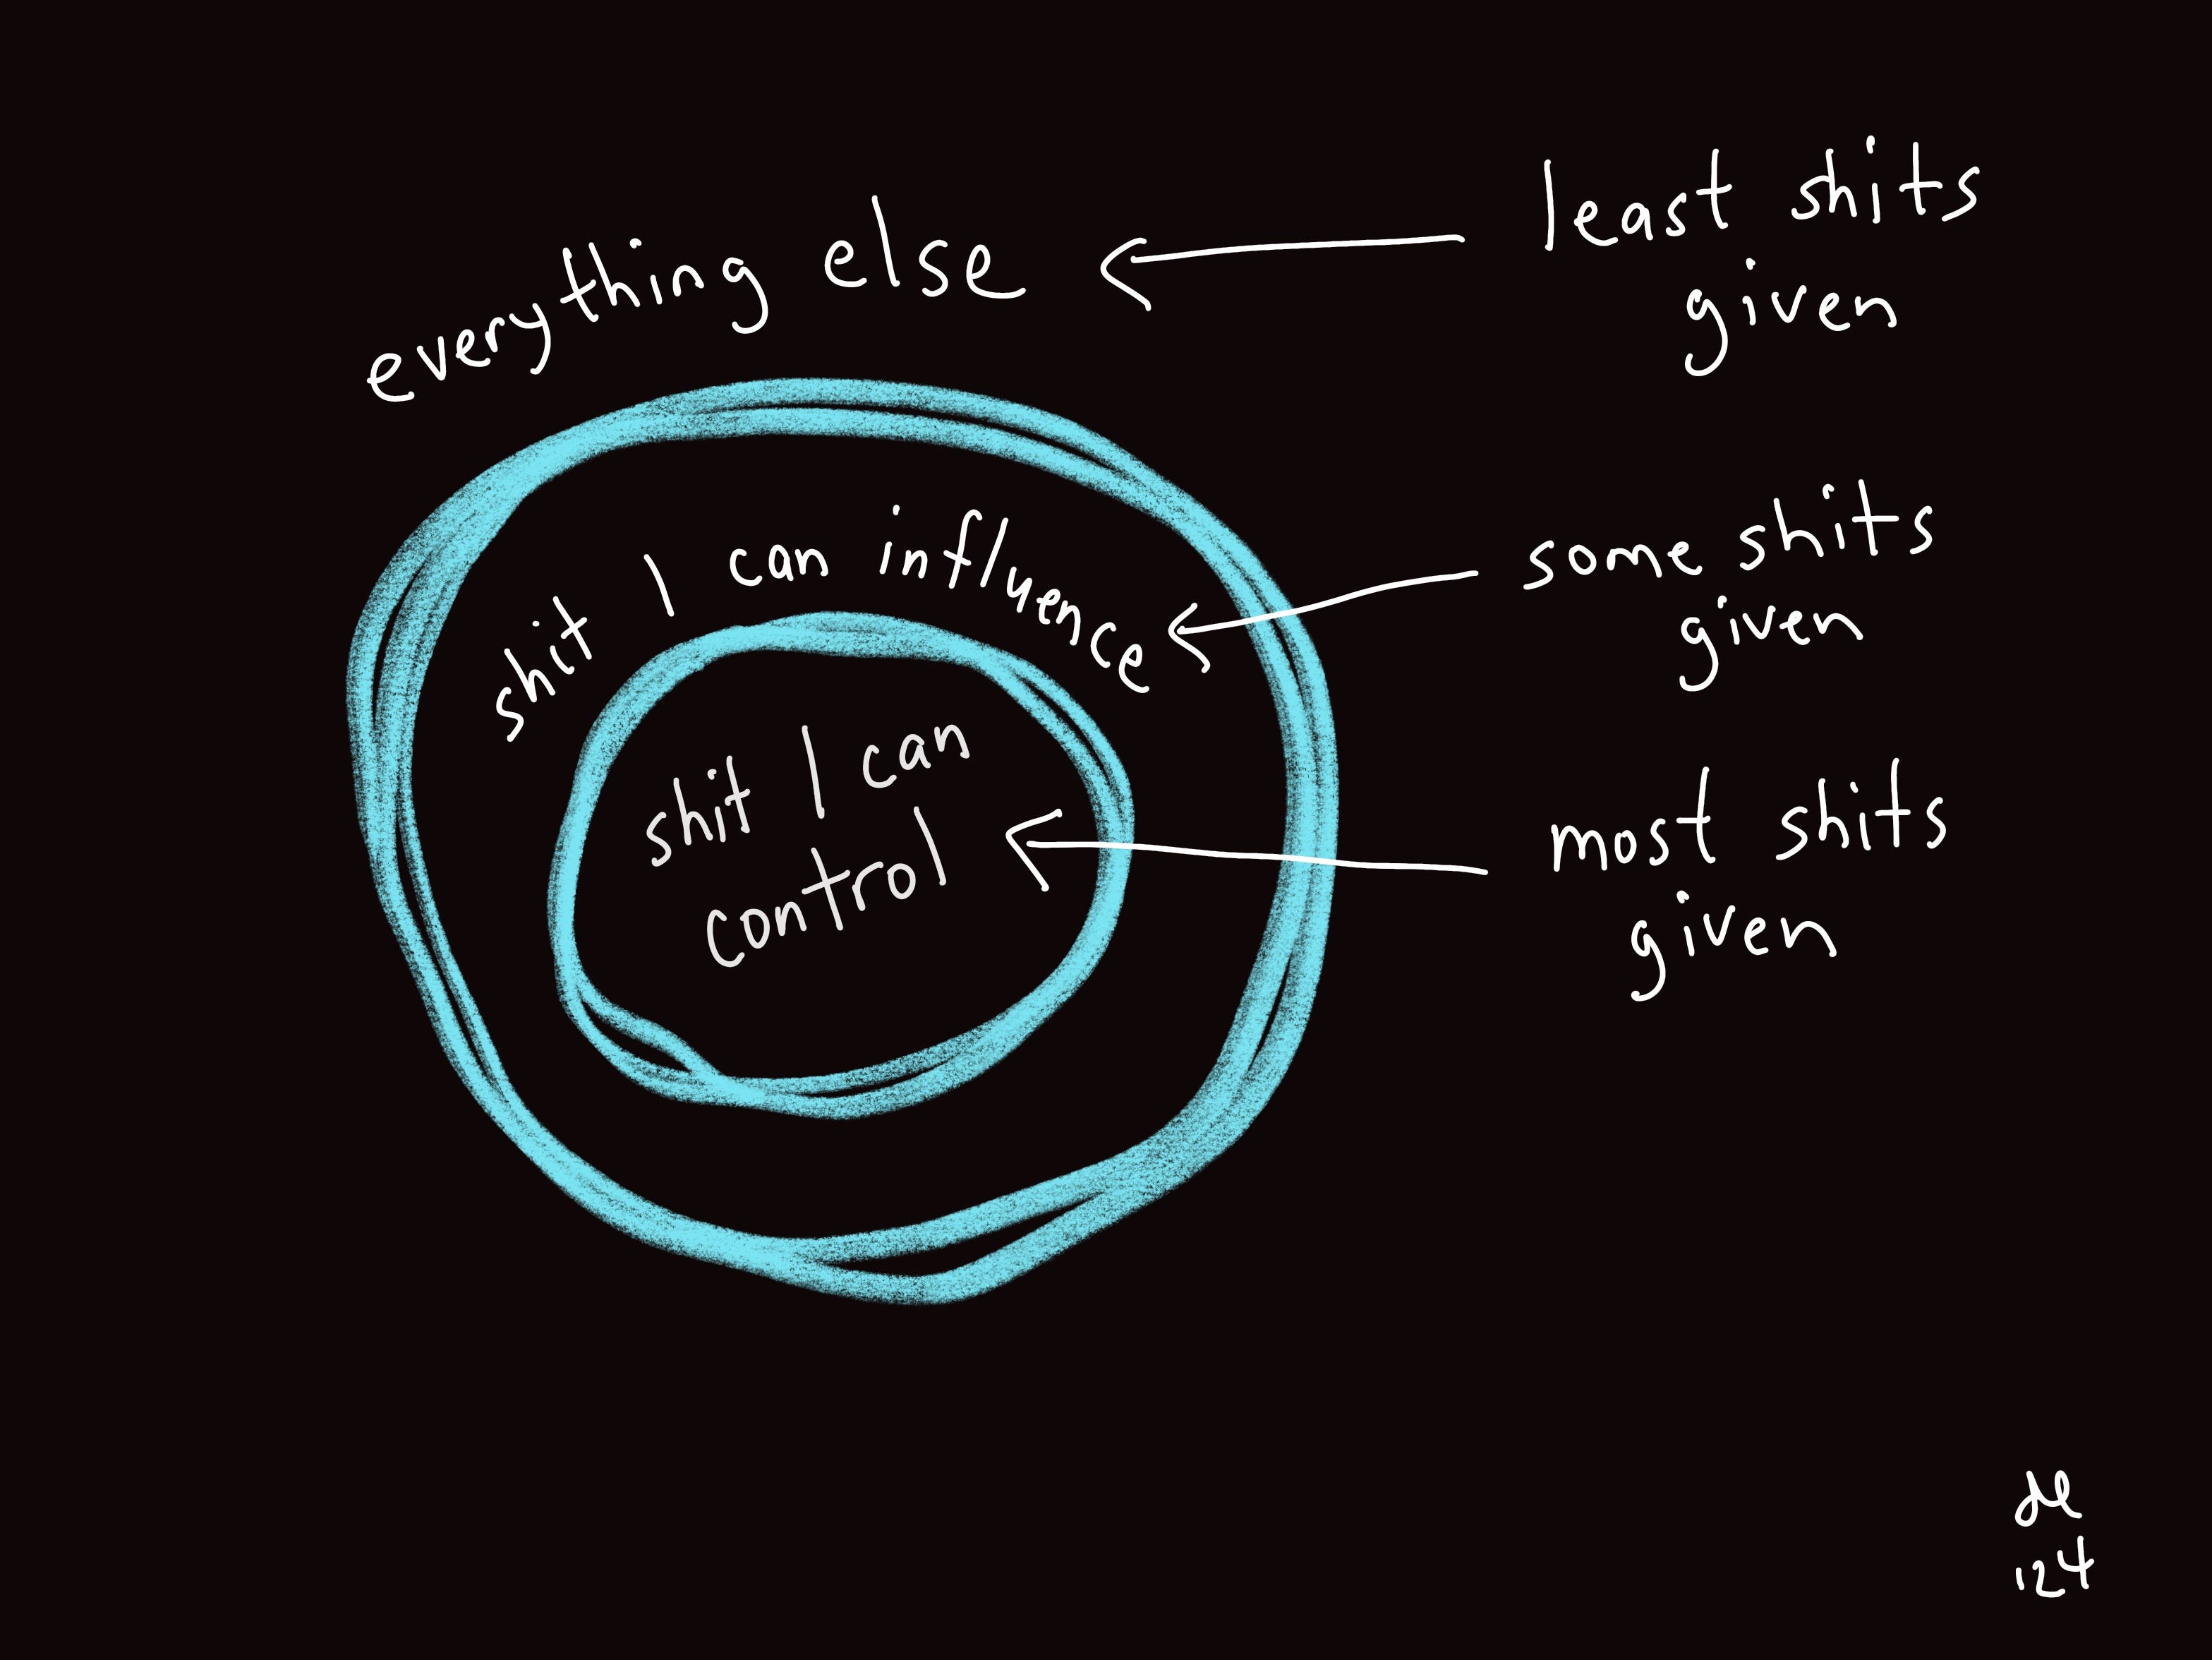 everything else
least shits
given
shit I can influence
some shits
given
shit I can
control
most shits
given
'24